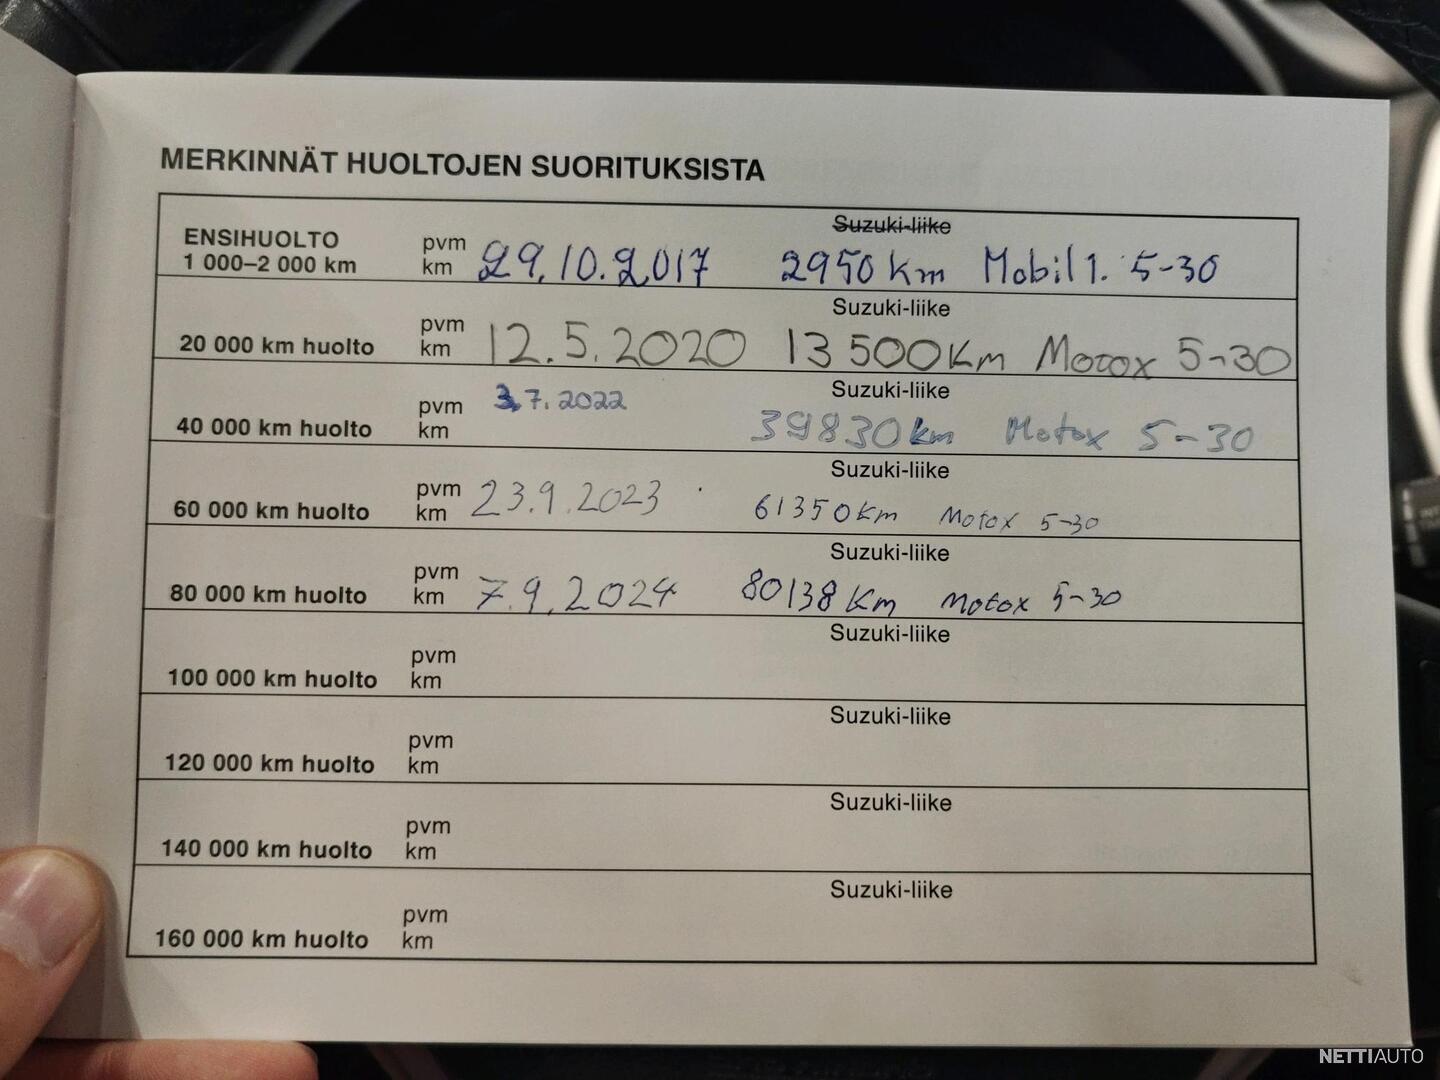 MERKINNÄT HUOLTOJEN SUORITUKSISTA
Suzuki-liike
ENSIHUOLTO pvm
1 000–2 000 km km 29.10.2017 2950 km Mobil 1. 5-30
Suzuki-liike
pvm
20 000 km huolto km 12.5.2020 13 500 Km Motox 5-30
Suzuki-liike
pvm 3.7.2022
40 000 km huolto km 39830 km Motox 5-30
Suzuki-liike
pvm 23.9.2023
60 000 km huolto km 61350 Km Motox 5-30
Suzuki-liike
pvm
80 000 km huolto km 7.9.2024 80138 Km Motox 5-30
Suzuki-liike
pvm
100 000 km huolto km
Suzuki-liike
pvm
120 000 km huolto km
Suzuki-liike
pvm
140 000 km huolto km
Suzuki-liike
pvm
160 000 km huolto km
NETTIAUTO